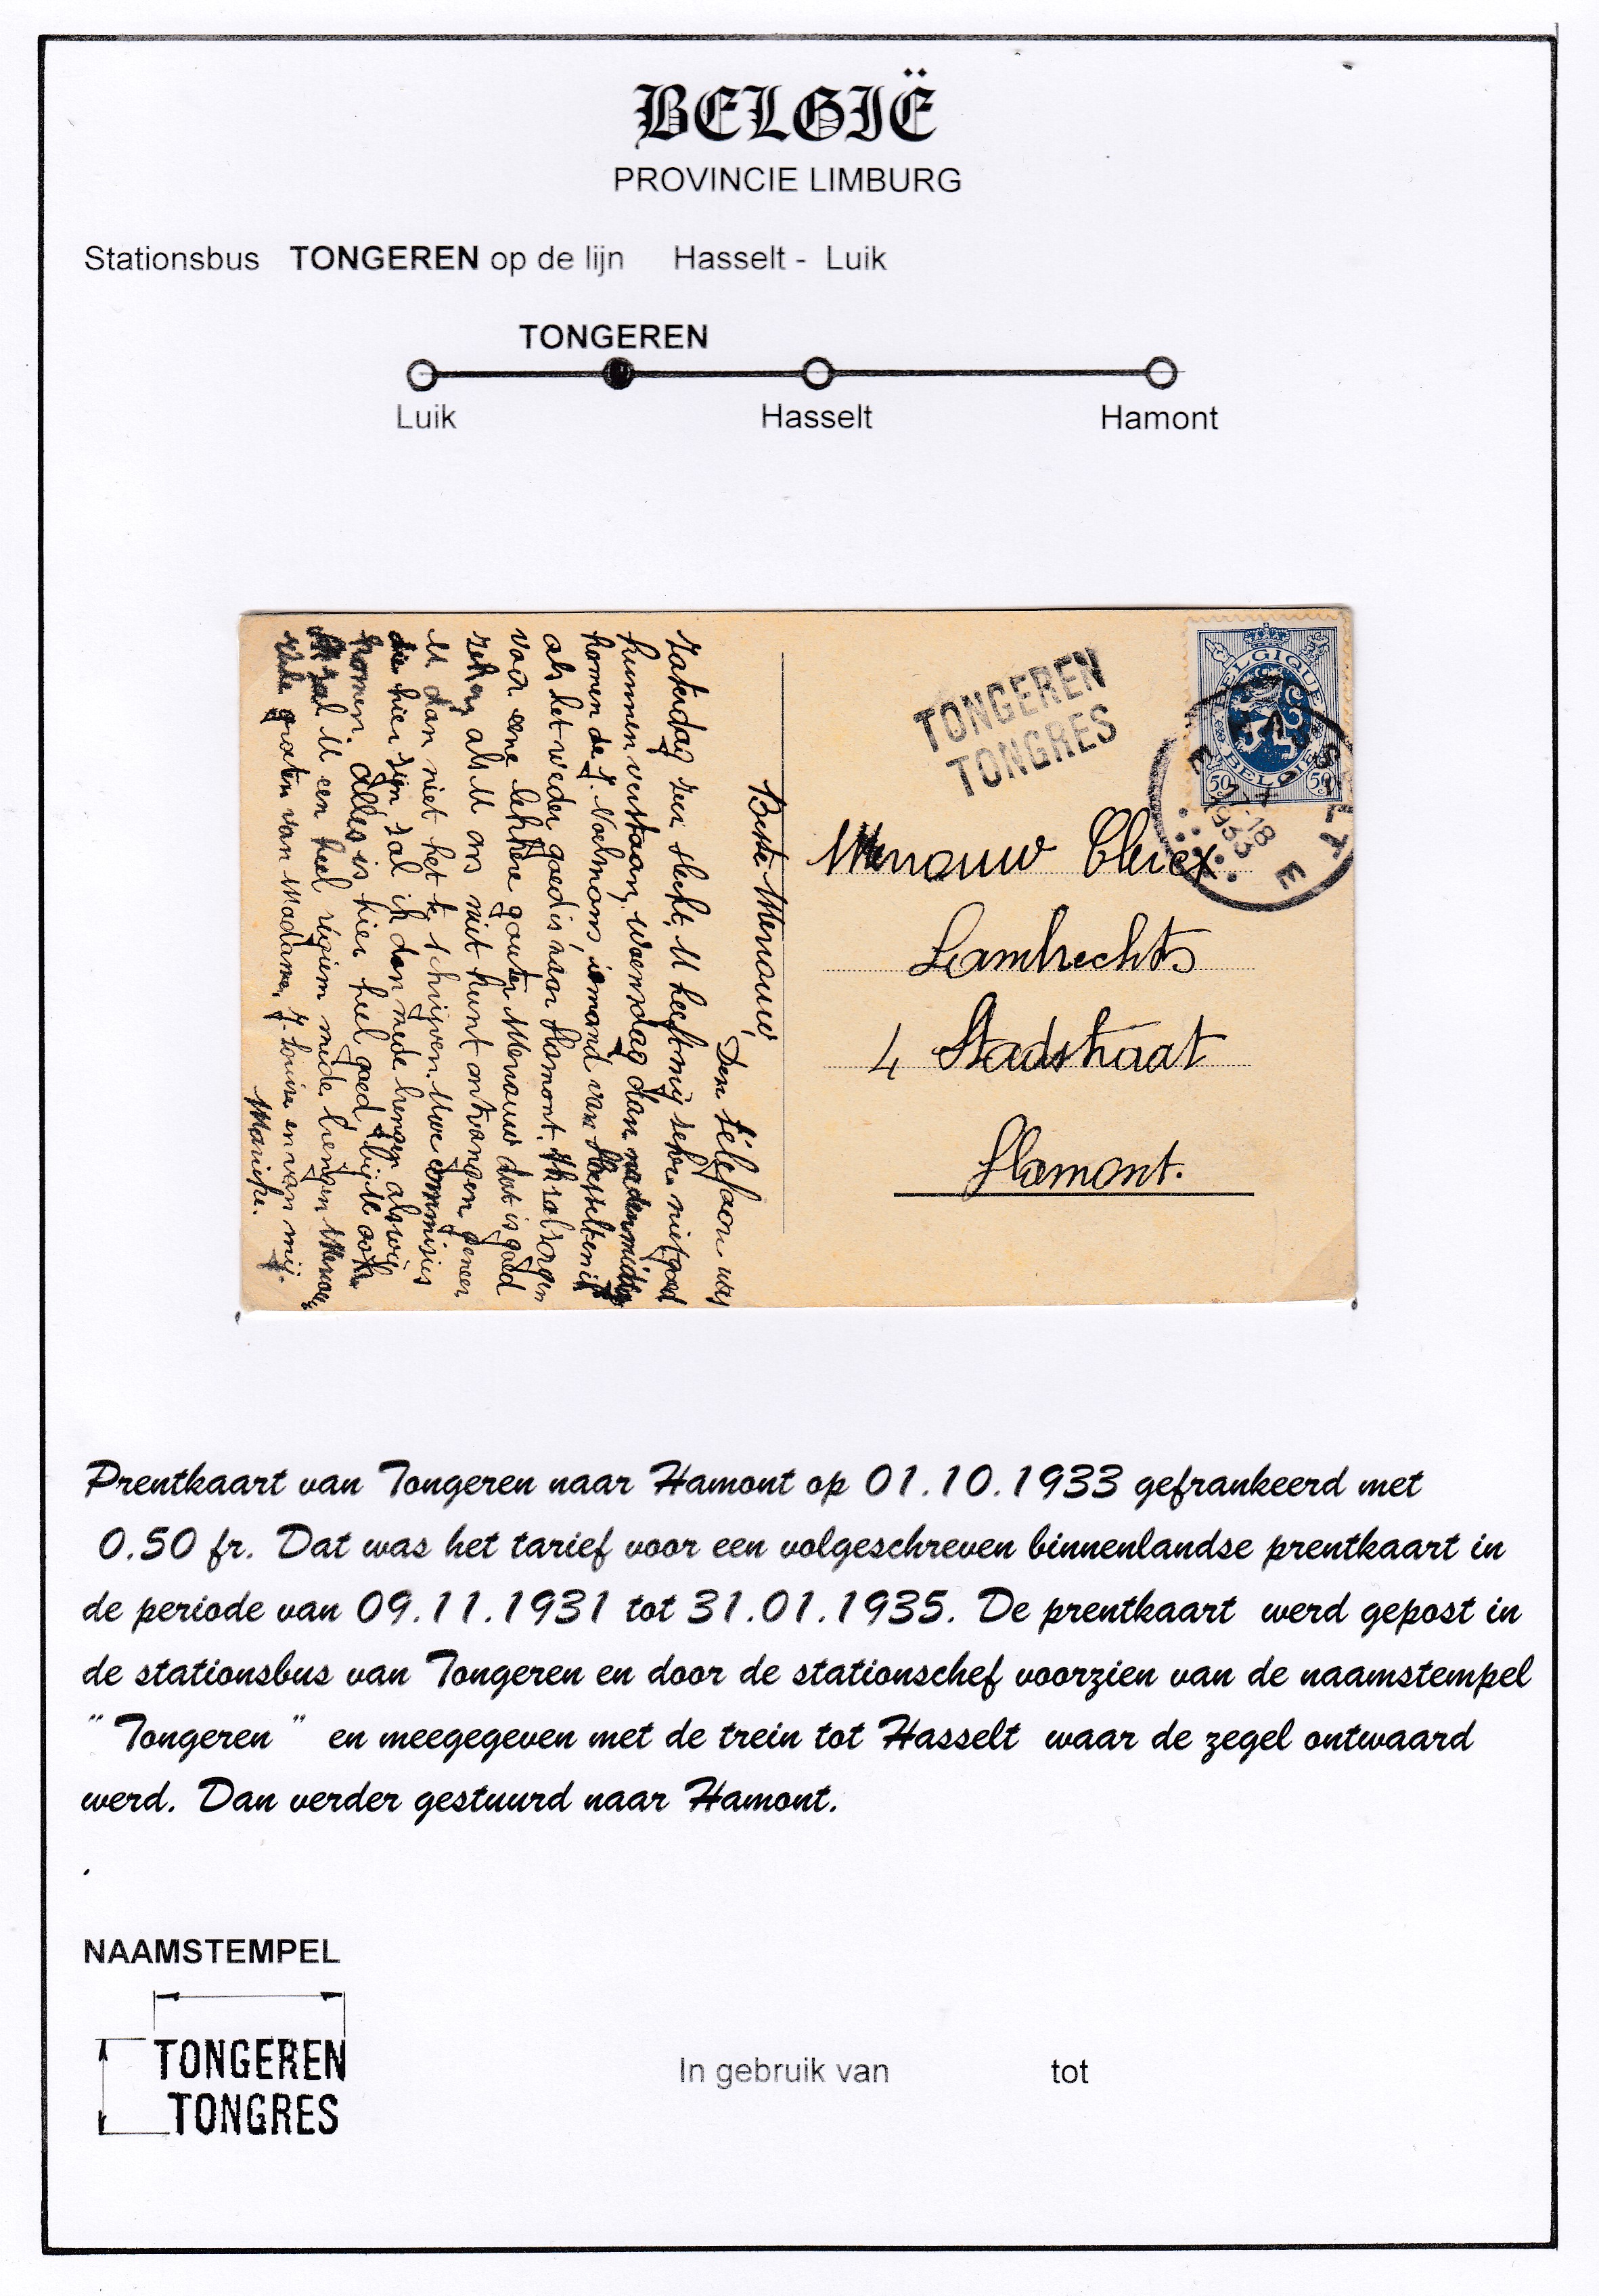 BELGIË
PROVINCIE LIMBURG
Stationsbus TONGEREN op de lijn Hasselt - Luik
TONGEREN
Luik Hasselt Hamont
TONGEREN
TONGRES
BELGIQUE
50 BELGIE 50
HASSELT
18
1933
E E
Menouw Clercx
Lambrechts
4 Stadstraat
Hamont.
Beste Menouw,
Den télefoon was
zaterdag zeer slecht, U heeft mij zeker niet goed
kunnen verstaan, woensdag dan nadenmiddag
komen de J. Noelmans, iemand van Hasselt en ik
als het weder goed is naar Hamont. Ik zal zorgen
voor eene lekkere gouter Menouw dat is goed
zeker, als U ons niet kunt ontvangen, geneer
U dan niet het te schrijven. Uwe commisies
die hier zijn zal ik dan mede brengen als wij
komen. Alles is hier heel goed, bij U ook
zal U een heel régiem mede brengen Menouw
Vele groeten van Madame, J. Louise en van mij.
Marieke.
Prentkaart van Tongeren naar Hamont op 01.10.1933 gefrankeerd met
0.50 fr. Dat was het tarief voor een volgeschreven binnenlandse prentkaart in
de periode van 09.11.1931 tot 31.01.1935. De prentkaart werd gepost in
de stationsbus van Tongeren en door de stationschef voorzien van de naamstempel
" Tongeren " en meegegeven met de trein tot Hasselt waar de zegel ontwaard
werd. Dan verder gestuurd naar Hamont.
.
NAAMSTEMPEL
TONGEREN
TONGRES
In gebruik van tot